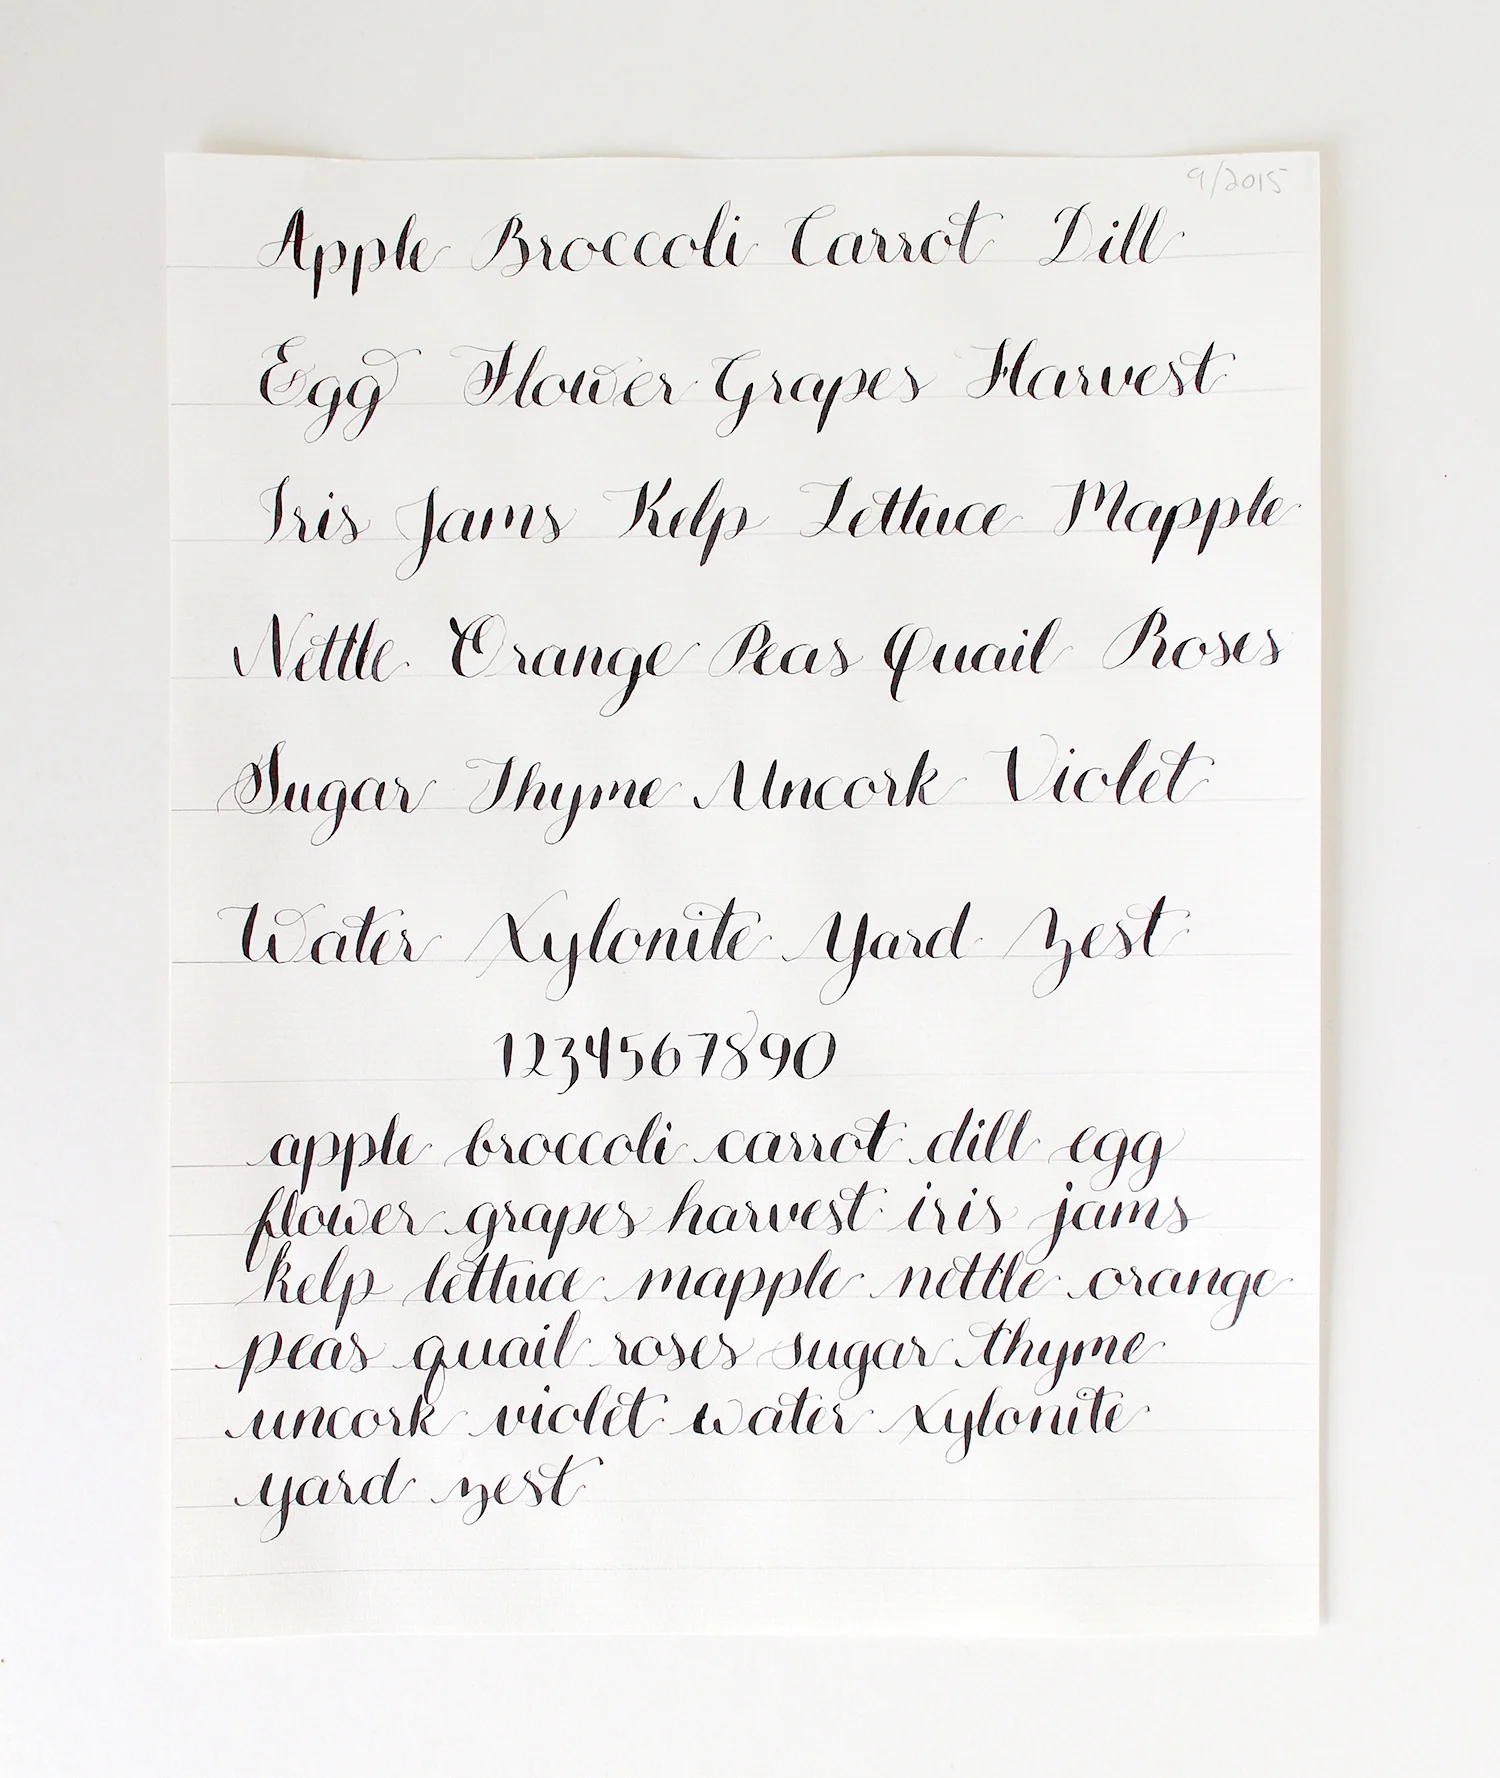 9/2015
Apple Broccoli Carrot Dill
Egg Flower Grapes Harvest
Iris Jams Kelp Lettuce Mapple
Nettle Orange Peas Quail Roses
Sugar Thyme Uncork Violet
Water Xylonite Yard Zest
1234567890
apple broccoli carrot dill egg
flower grapes harvest iris jams
kelp lettuce mapple nettle orange
peas quail roses sugar thyme
uncork violet water xylonite
yard zest